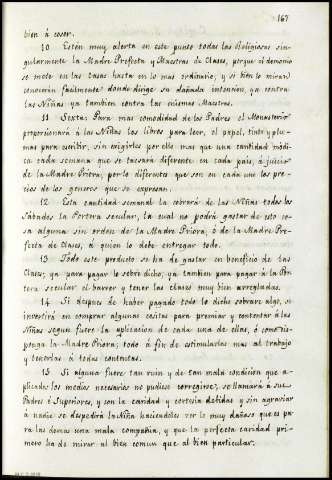 167
bien á coser.
10 Estén muy alerta en este punto todas las Religiosas sin-
gularmente la Madre Prefecta y Maestras de Clases, porque el demonio
se mete en las casas hasta en lo mas ordinario, y si bien lo miran
conocerán facilmente donde dirige su dañada intencion, ya contra
las Niñas ya tambien contra las mismas Maestras.
11 Sexta: Para mas comodidad de los Padres el Monasterio
proporcionará á las Niñas los libros para leer, el papel, tinta y plu-
mas para escribir, sin exigirles por ello mas que una cantidad módica
cada semana que se tassará diferente en cada pais, á juicio
de la Madre Priora, por lo diferentes que son en cada uno los pre-
cios de los generos que se expresan.
12 Esta cantidad semanal la cobrará de las Niñas todos los
Sábados la Portera secular, la cual no podrá gastar de esto co-
sa alguna sin orden de la Madre Priora, ó de la Madre Pre-
fecta de Clases, á quien lo debe entregar todo.
13 Todo este producto se ha de gastar en beneficio de las
Clases; ya para pagar lo sobre dicho; ya tambien para pagar á la Por-
tera secular el barrer y tener las clases muy bien arregladas.
14 Si despues de haber pagado todo lo dicho sobrare algo, se
invertirá en comprar algunas cositas para premiar y contentar á las
Niñas segun fuere la aplicacion de cada una de ellas, ó como dis-
ponga la Madre Priora, todo á fin de estimularlas mas al trabajo
y tenerlas á todas contentas.
15 Si alguna fuere tan ruin y de tan mala condicion que a-
plicados los medios necesarios no pudiese corregirse, se llamará á sus
Padres ó Superiores, y con la caridad y cortesia debidas y sin agraviar
á nadie se despedirá la Niña haciendoles ver lo muy dañoso que es pa-
ra las demas una mala compañia, y que la perfecta caridad pri-
mero ha de mirar al bien comun que al bien particular.